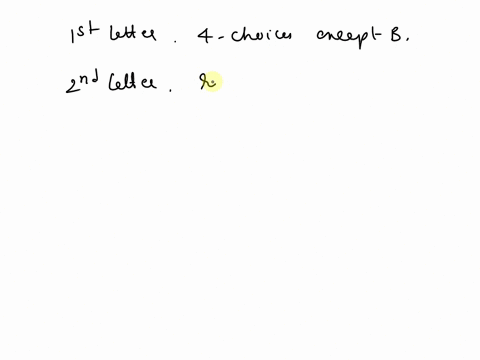 1st letter. 4-choices except B.
2nd letter.